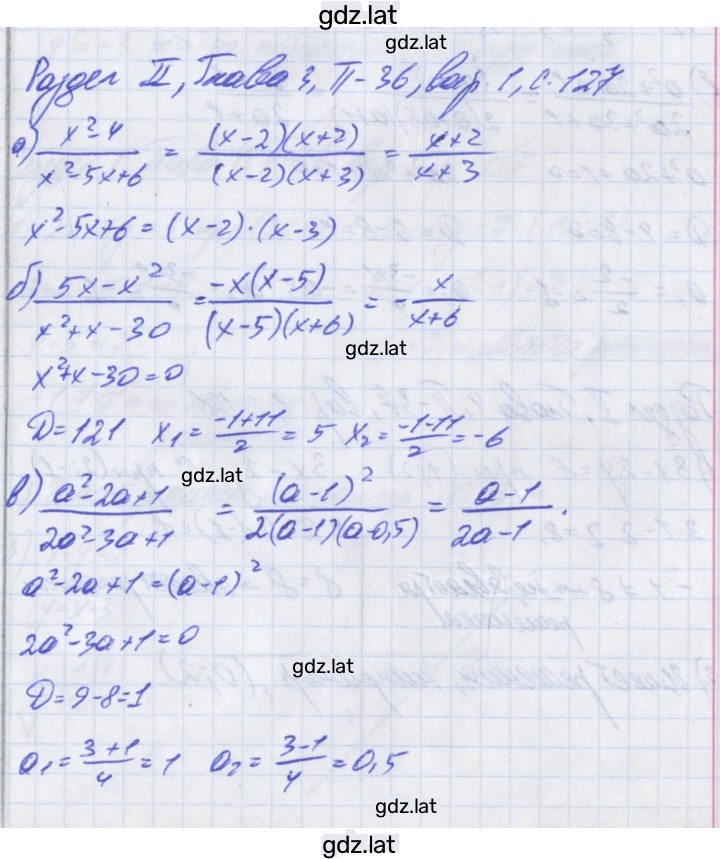 gdz.lat
gdz.lat
Раздел II, Глава 3, П-36, вар. 1, с. 127
а) (x²-4)/(x²-5x+6) = ((x-2)(x+2))/((x-2)(x+3)) = (x+2)/(x+3)
x²-5x+6 = (x-2)·(x-3)
б) (5x-x²)/(x²+x-30) = (-x(x-5))/((x-5)(x+6)) = -x/(x+6)
gdz.lat
x²+x-30=0
D=121 x₁ = (-1+11)/2 = 5 x₂ = (-1-11)/2 = -6
gdz.lat
в) (a²-2a+1)/(2a²-3a+1) = (a-1)²/(2(a-1)(a-0,5)) = (a-1)/(2a-1).
a²-2a+1=(a-1)²
2a²-3a+1=0
gdz.lat
D=9-8=1
a₁ = (3+1)/4 = 1 a₂ = (3-1)/4 = 0,5
gdz.lat
gdz.lat